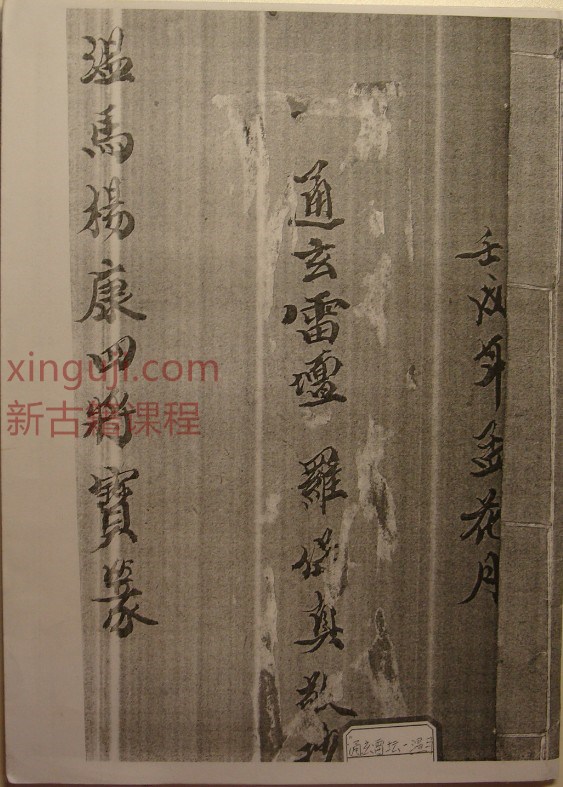 壬戌年孟花月
通玄雷壇 羅 真
温馬楊康四將寶篆
xinguji.com
新古籍课程
通玄雷坛一温